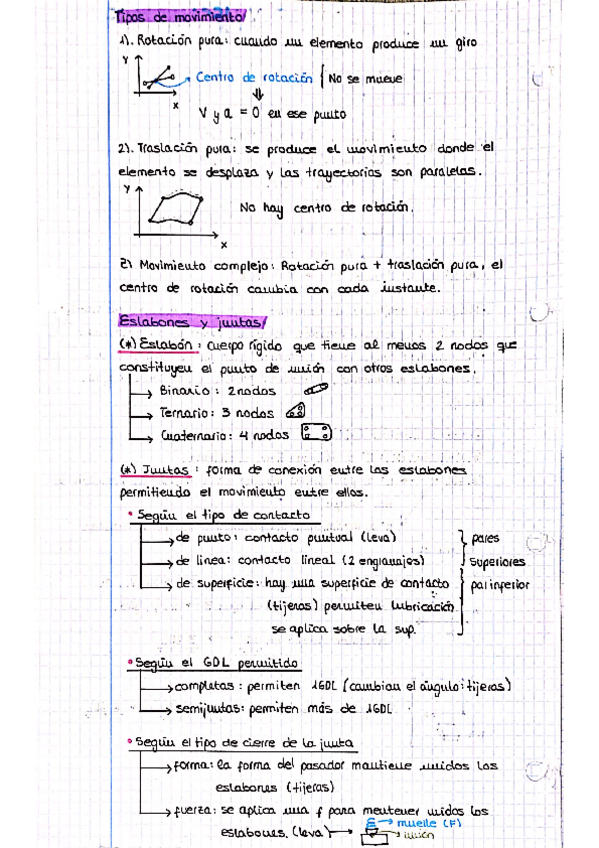 Tipos de movimiento/
1). Rotación pura: cuando un elemento produce un giro
Y
Centro de rotación { No se mueve
X
V y a = 0 en ese punto
2). Traslación pura: se produce el movimiento donde el
elemento se desplaza y las trayectorias son paralelas.
Y
No hay centro de rotación.
X
2). Movimiento complejo: Rotación pura + traslación pura, el
centro de rotación cambia con cada instante.
Eslabones y juntas/
(*) Eslabón: cuerpo rígido que tiene al menos 2 nodos que
constituyen el punto de unión con otros eslabones.
Binario: 2 nodos
Ternario: 3 nodos
Cuaternario: 4 nodos
(*) Juntas: forma de conexión entre los eslabones
permitiendo el movimiento entre ellos.
• Según el tipo de contacto
de punto: contacto puntual (leva) } pares
de linea: contacto lineal (2 engranajes) superiores
de superficie: hay una superficie de contacto par inferior
(tijeras) permiten lubricación
se aplica sobre la sup.
• Según el GDL permitido
completas: permiten 1GDL (cambian el ángulo: tijeras)
semijuntas: permiten más de 1GDL
• Según el tipo de cierre de la junta
forma: la forma del pasador mantiene unidos los
eslabones (tijeras)
fuerza: se aplica una f para mantener unidos los
eslabones. (leva) → muelle (F)
→ unión